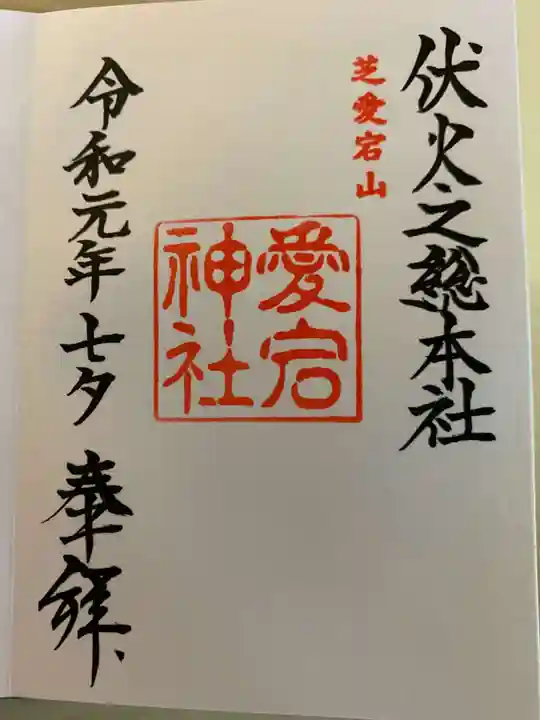 伏火之総本社
芝愛宕山
愛宕
神社
令和元年七夕奉拝